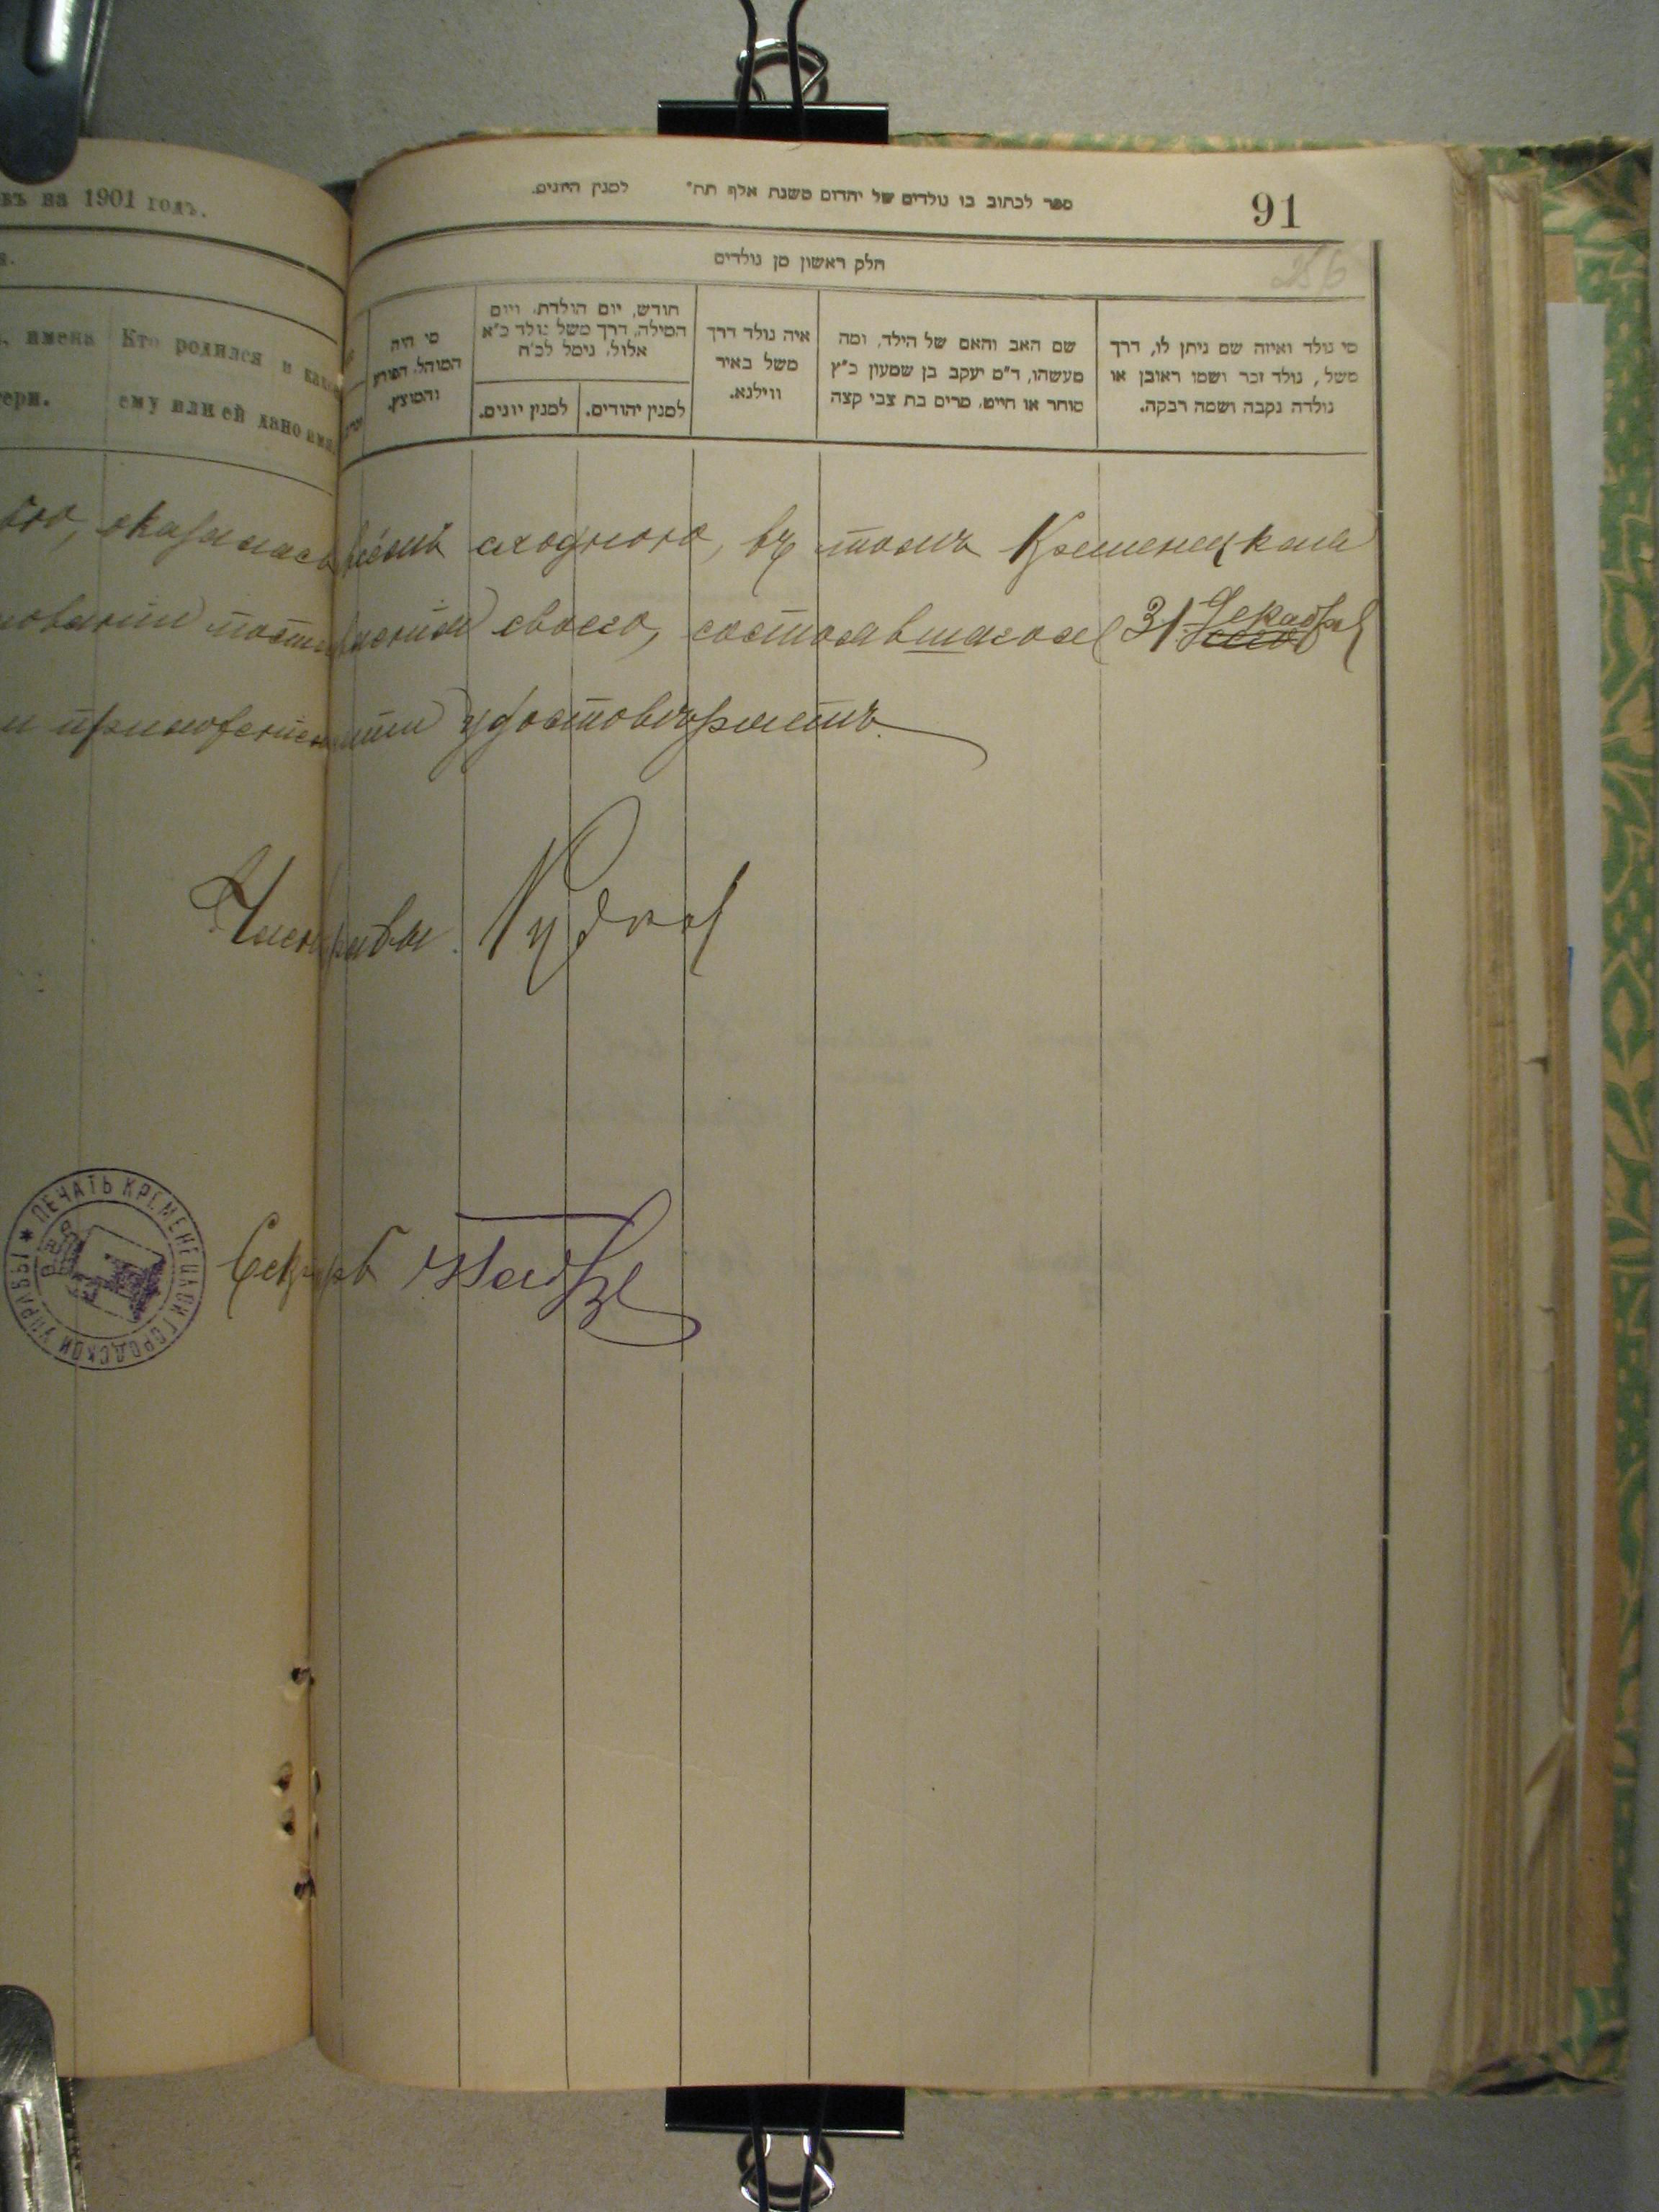 въ на 1901 годъ.
ספר לכתוב בו נולדים של יהדום משנת אלף תת״ למנין היונים.
91
חלק ראשון מן נולדים
, имена
тери.
Кто родился и како
ему или ей дано имя.
מי היה
המוהל, הפורע
והמוצץ.
חודש, יום הולדת, ויום
המילה, דרך משל נולד כ״א
אלול, נימל לכ״ח
למנין יונים.
למנין יהודים.
איה נולד דרך
משל באיר
ווילנא.
שם האב והאם של הילד, ומה
מעשהו, ד״מ יעקב בן שמעון כ״ץ
סוחר או חייט, מרים בת צבי קצה
מי נולד ואיזה שם ניתן לו, דרך
משל, נולד זכר ושמו ראובן או
נולדה נקבה ושמה רבקה.
оказалась сходною, въ томъ Кременецкая
своего, состоявшагося 31 Декабря
и приложеніемъ удостовѣряетъ.
Член управы
ПЕЧАТЬ КРЕМЕНЕЦКОЙ ГОРОДСКОЙ УПРАВЫ
Секрарь